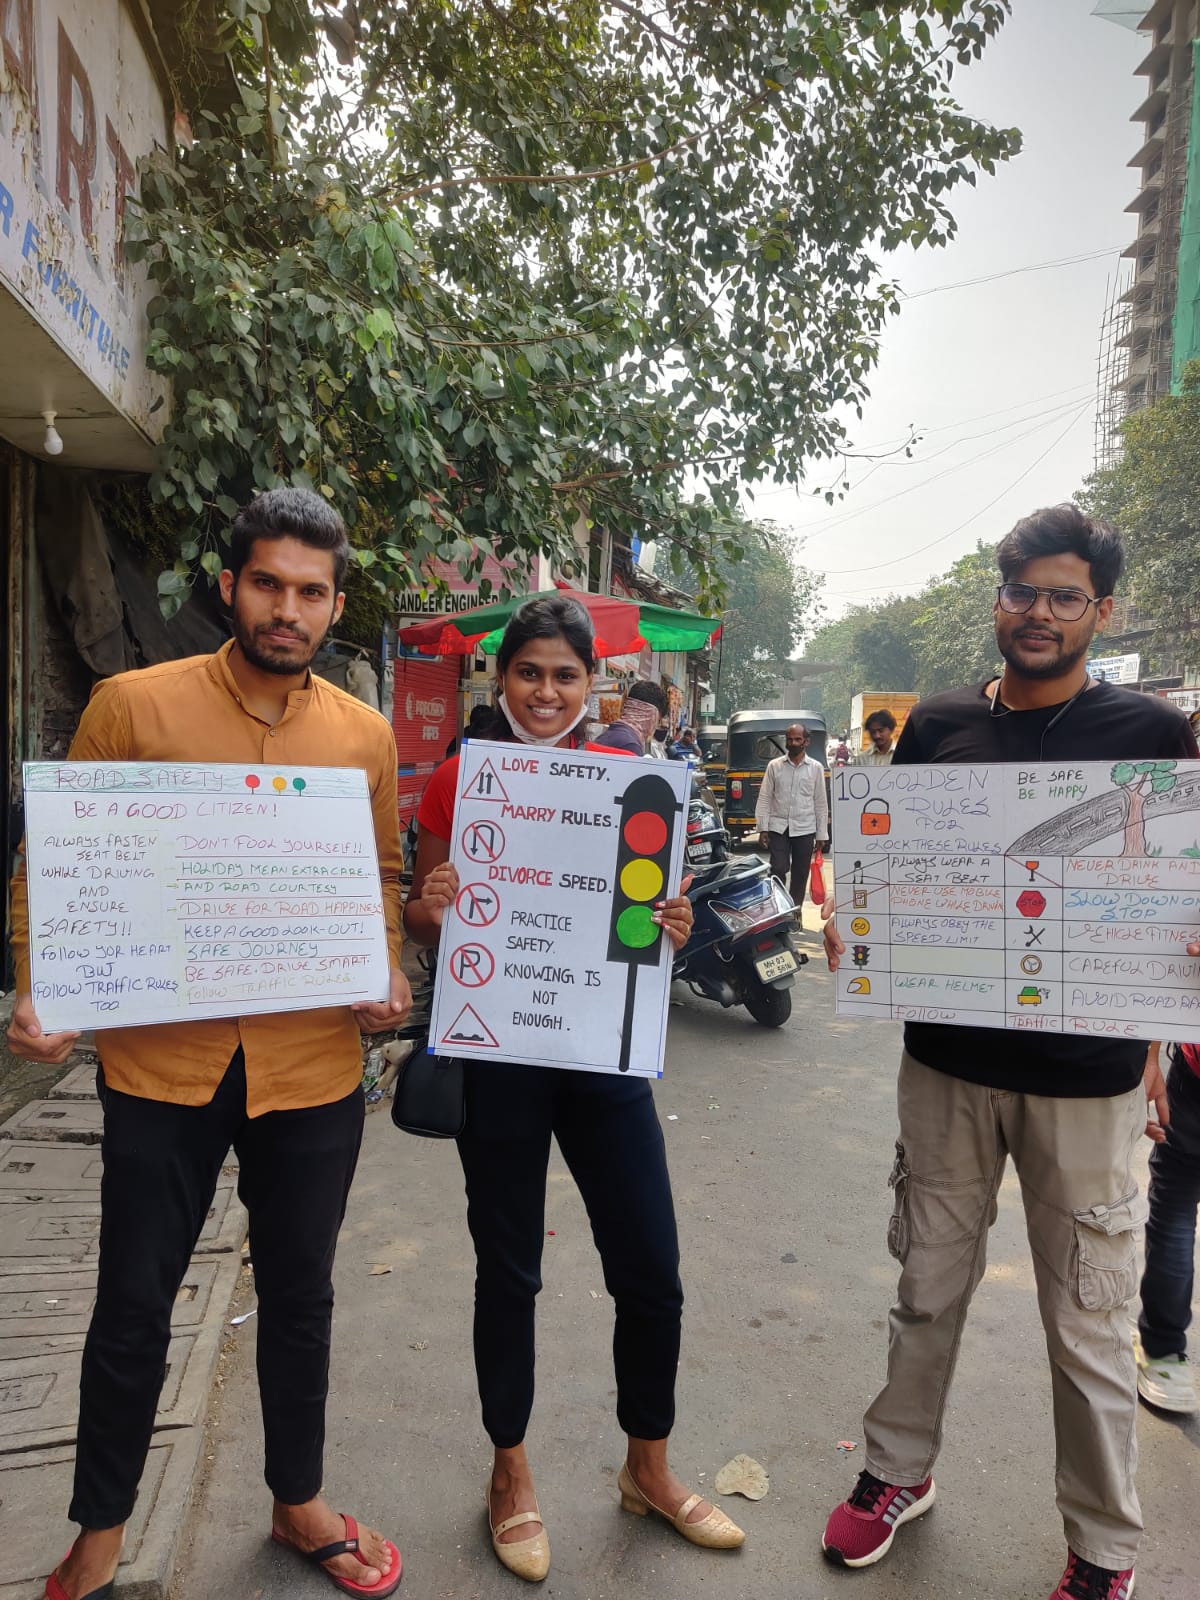 ART
R FURNITURE
SANDEER ENGINEE
PRECISION
PIPES
ROAD SAFETY
BE A GOOD CITIZEN!
ALWAYS FASTEN
SEAT BELT
WHILE DRIVING
AND
ENSURE
SAFETY!!
FOLLOW YOR HEART
BUT
FOLLOW TRAFFIC RULES
TOO
DON'T FOOL YOURSELF!!
HOLIDAY MEAN EXTRA CARE...
AND ROAD COURTESY
DRIVE FOR ROAD HAPPINESS
KEEP A GOOD LOOK-OUT!
SAFE JOURNEY
BE SAFE. DRIVE SMART.
FOLLOW TRAFFIC RULES
LOVE SAFETY.
MARRY RULES.
DIVORCE SPEED.
PRACTICE
SAFETY.
KNOWING IS
NOT
ENOUGH.
P
MH 03
CK 5616
10 GOLDEN
RULES
FOR
LOCK THESE RULES
BE SAFE
BE HAPPY
ALWAYS WEAR A
SEAT BELT
NEVER DRINK AND
DRIVE
NEVER USE MOBILE
PHONE WHILE DRIVIN
STOP
SLOW DOWN ON
STOP
50
ALWAYS OBEY THE
SPEED LIMIT
VEHICLE FITNES
CAREFUL DRIVI
WEAR HELMET
AVOID ROAD RA
FOLLOW TRAFFIC RULE